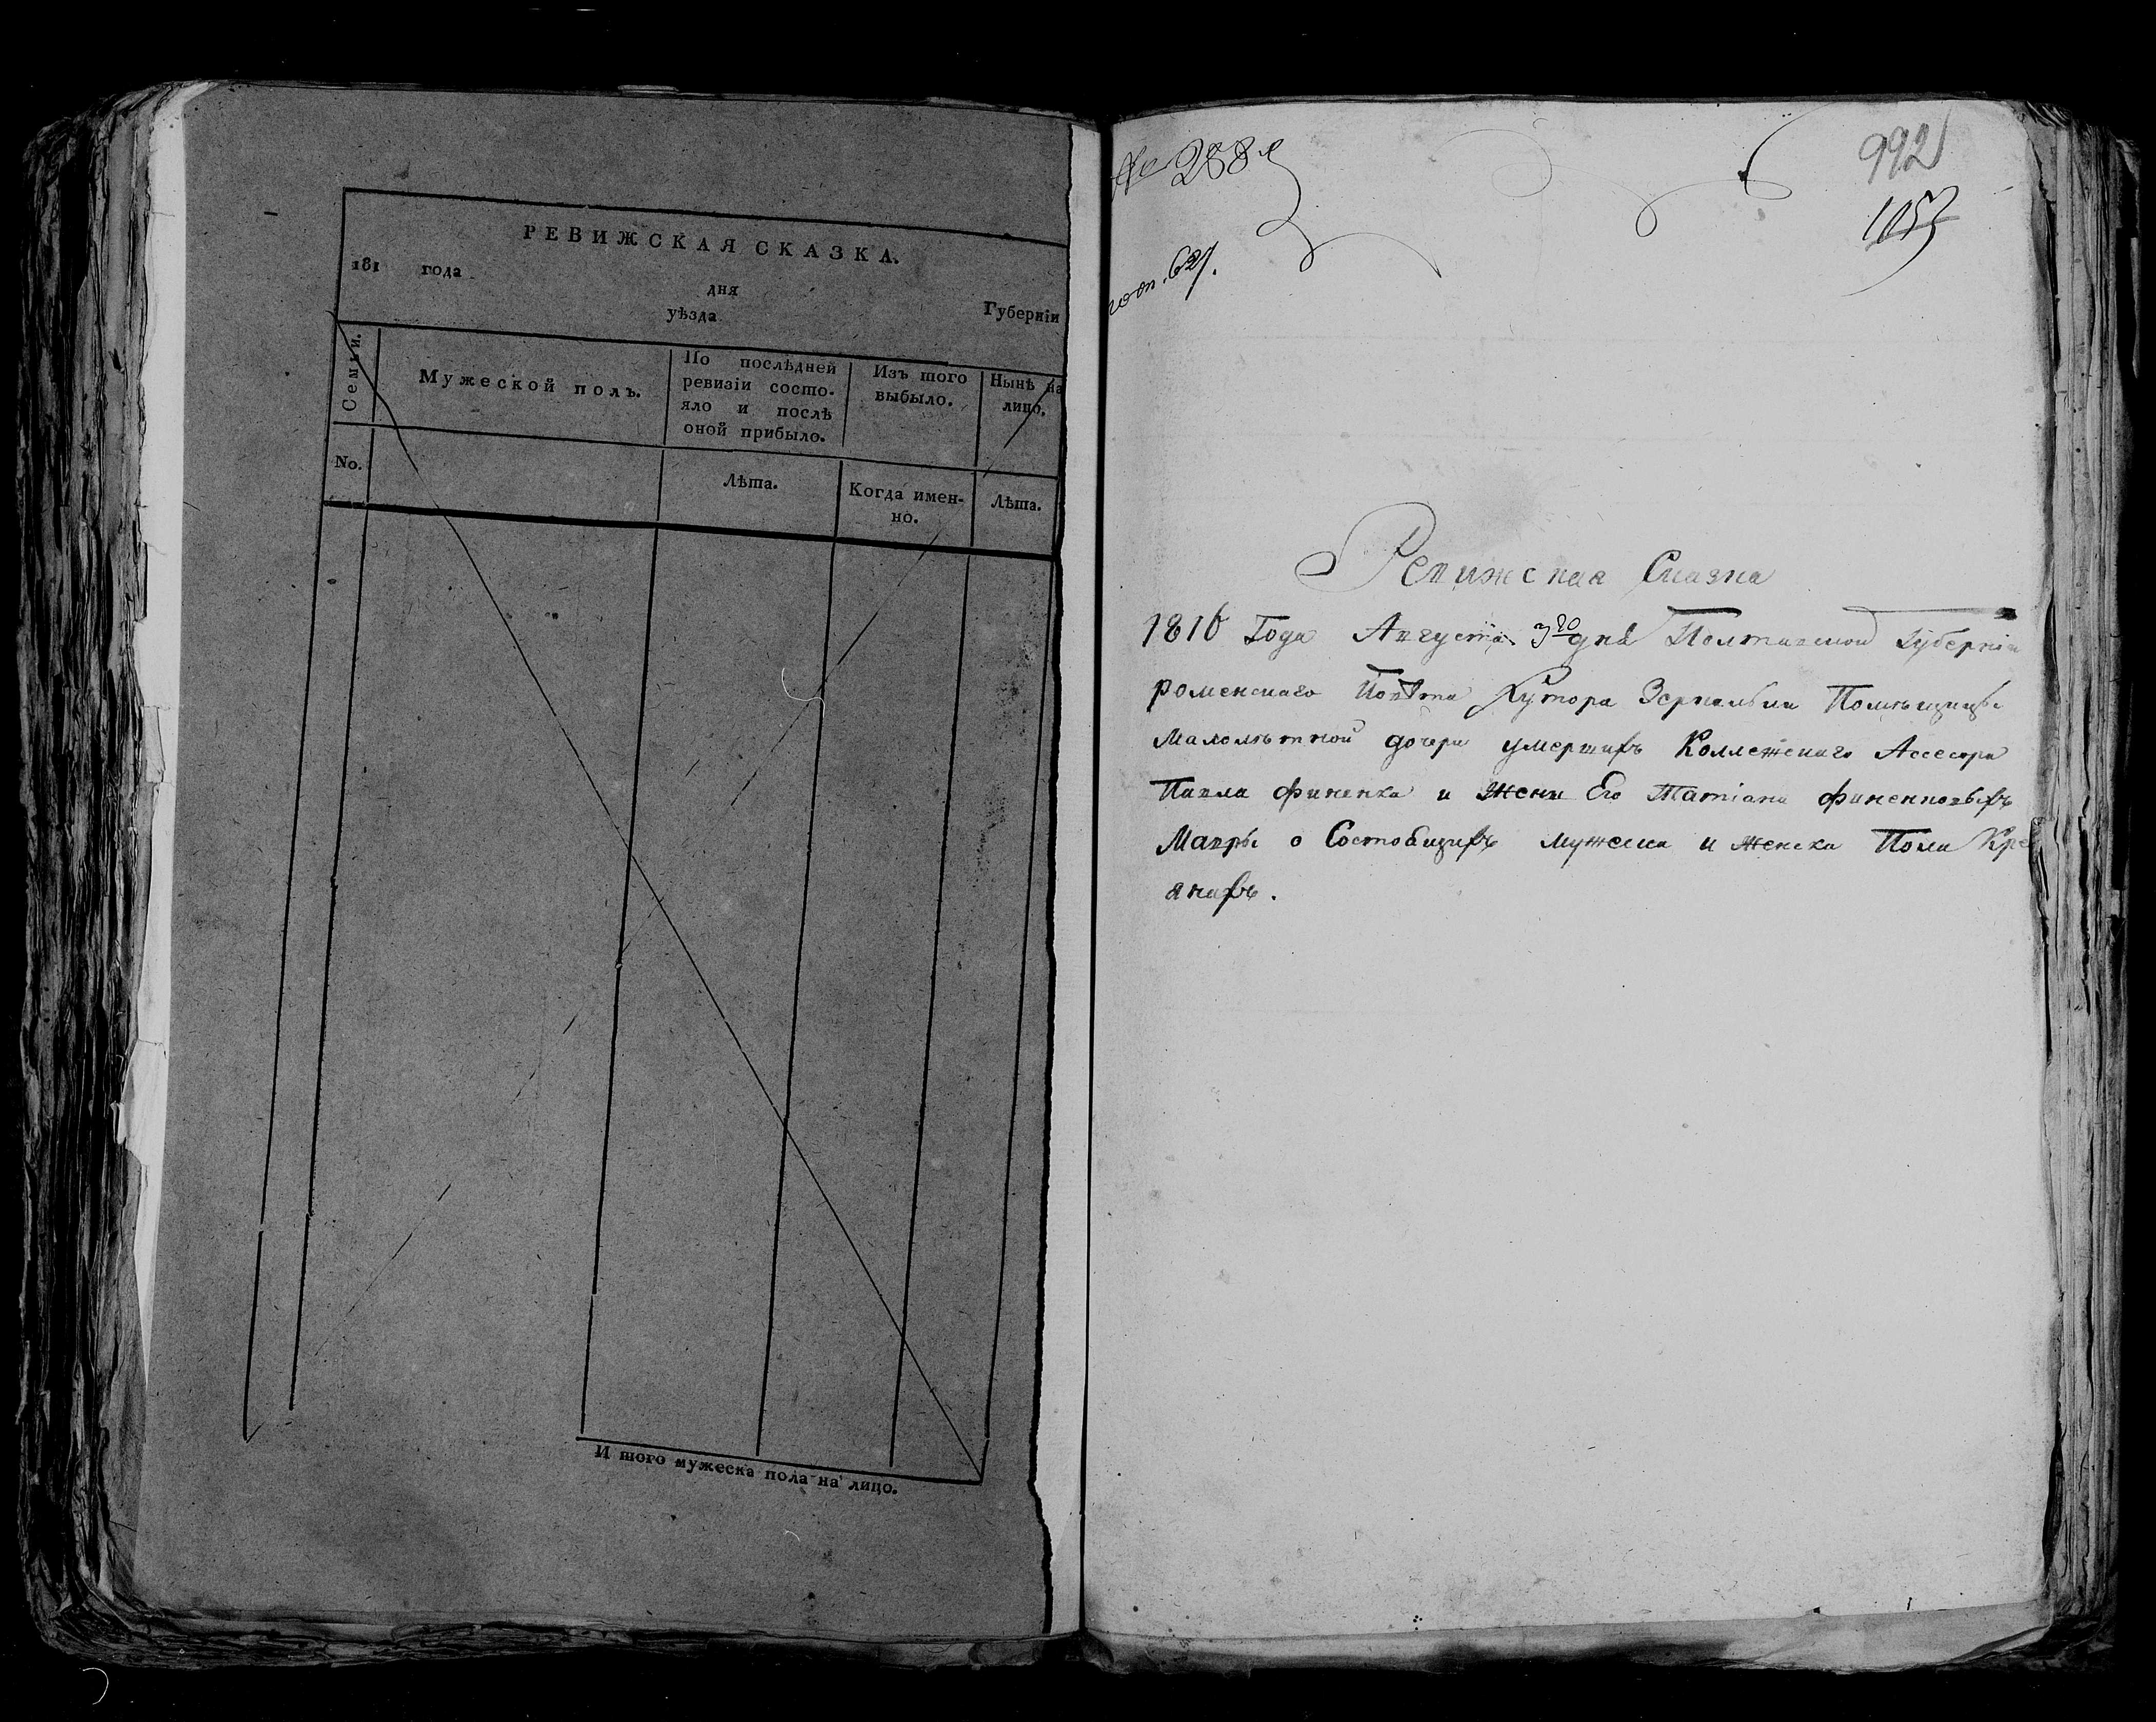 РЕВИЖСКАЯ СКАЗКА.
181 года
дня
уѣзда Губерніи
Семьи.
Мужеской полъ.
По послѣдней
ревизіи состо-
яло и послѣ
оной прибыло.
Изъ того
выбыло.
Нынѣ на
лицо.
No.
Лѣта.
Когда имен-
но.
Лѣта.
И того мужеска пола на лицо.
№ 288й
992
1057
Ревижская Сказка
1816 Года Августа 3го дня Полтавской Губерніи
роменскаго Повѣта Хутора Помѣщицы
Малолѣтной дочери умершихъ Коллежскаго Ассесора
Павла финенка и жени Его Татіани финенковыхъ
Мавры о Состоящихъ мужеска и женска Пола Кре
янахъ.